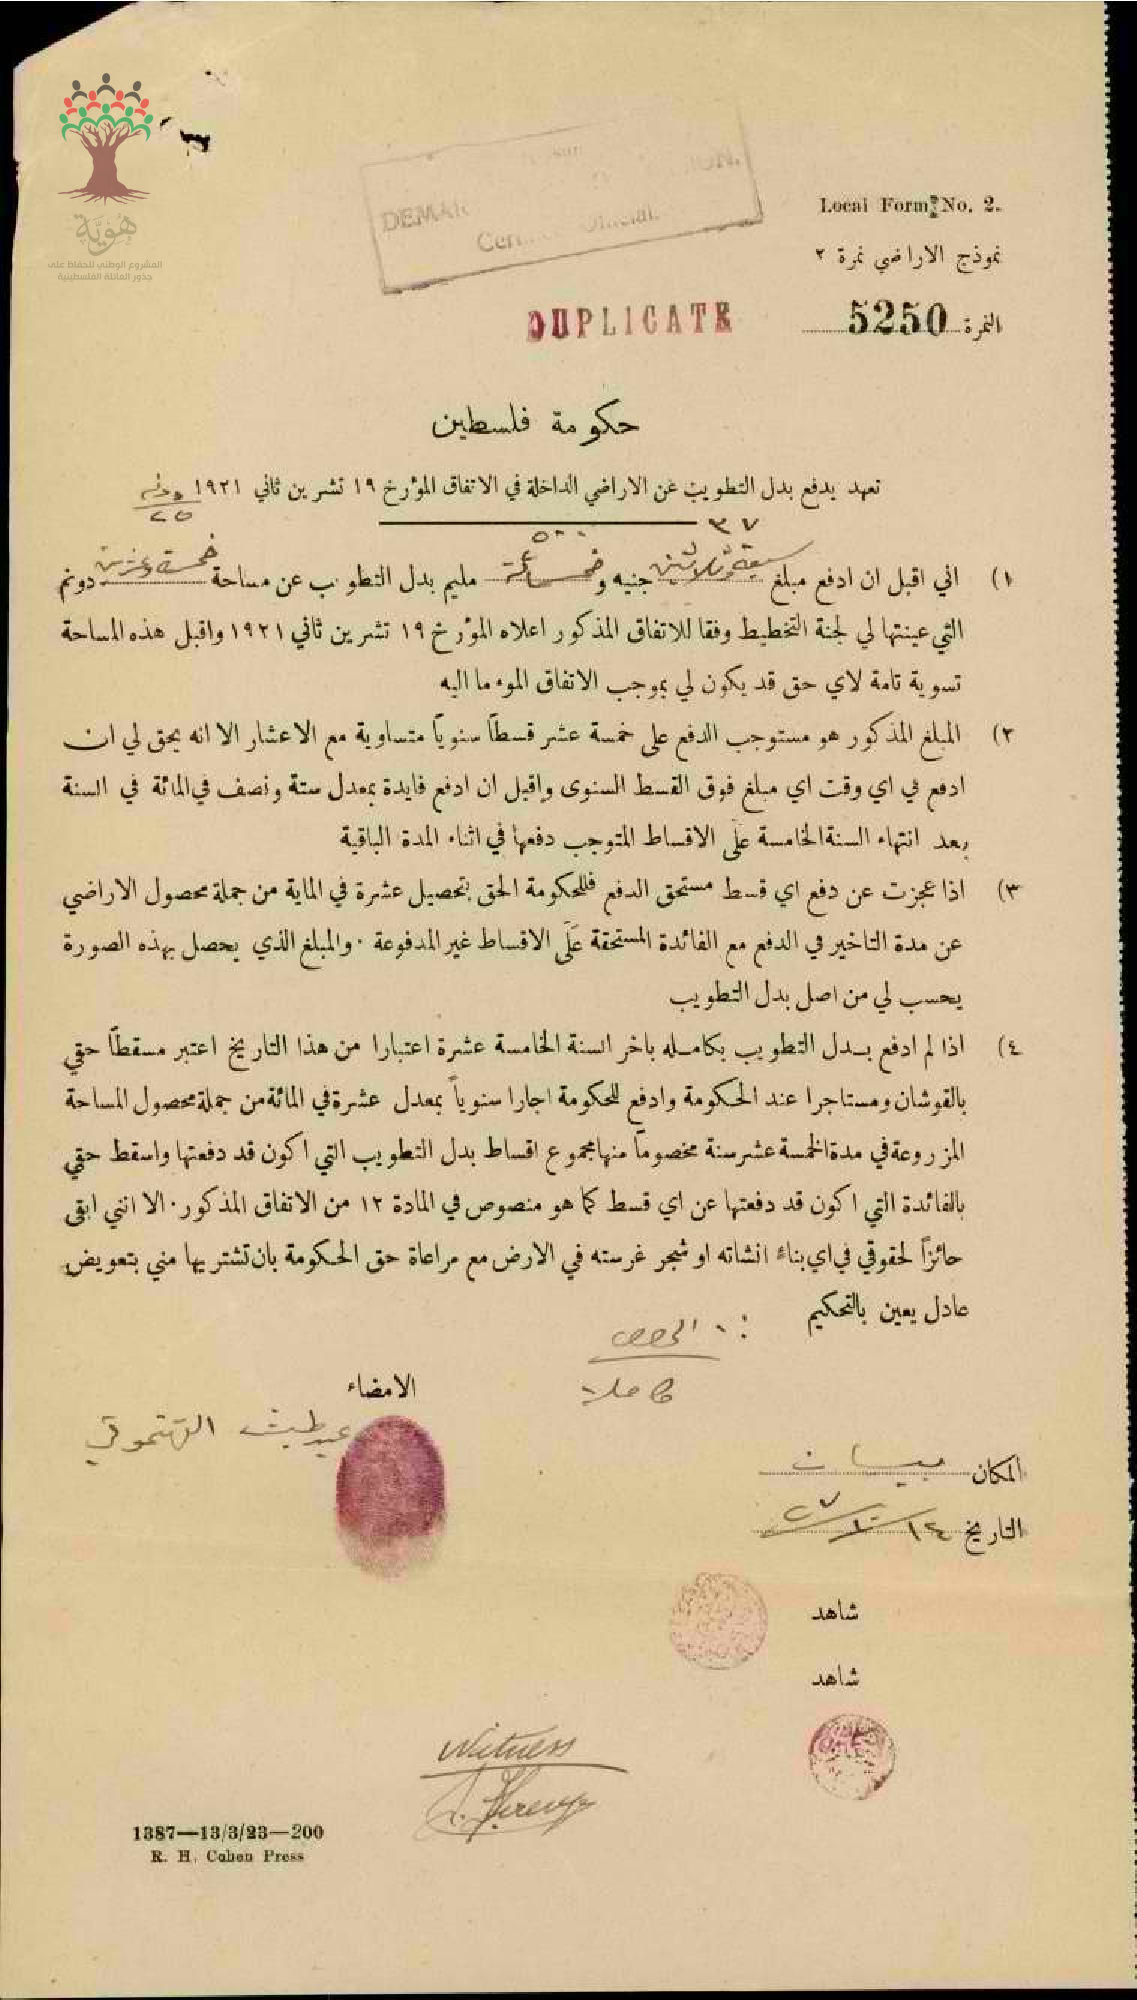 هُويَّة
المشروع الوطني للحفاظ على
جذور العائلة الفلسطينية
DEMAR ION.
Local Form No. 2.
نموذج الاراضي نمرة ٢
النمرة 5250
DUPLICATE
حكومة فلسطين
تعهد بدفع بدل التطويب عن الاراضي الداخلة في الاتفاق المؤرخ ١٩ تشرين ثاني ١٩٢١
دونم
٢٥
٣٧
٥٠٠
١) اني اقبل ان ادفع مبلغ سبعة وثلاثين جنيه و خمسمائة مليم بدل التطويب عن مساحة خمسة وعشرين دونم
التي عينتها لي لجنة التخطيط وفقا للاتفاق المذكور اعلاه المؤرخ ١٩ تشرين ثاني ١٩٢١ واقبل هذه المساحة
تسوية تامة لاي حق قد يكون لي بموجب الاتفاق المومٔ ما اليه
٢) المبلغ المذكور هو مستوجب الدفع على خمسة عشر قسطاً سنوياً متساوية مع الاعشار الا انه يحق لي ان
ادفع في اي وقت اي مبلغ فوق القسط السنوى واقبل ان ادفع فايدة بمعدل ستة ونصف في المائة في السنة
بعد انتهاء السنة الخامسة عَلَى الاقساط المتوجب دفعها في اثناء المدة الباقية
٣) اذا عجزت عن دفع اي قسط مستحق الدفع فللحكومة الحق بتحصيل عشرة في الماية من جملة محصول الاراضي
عن مدة التاخير في الدفع مع الفائدة المستحقة عَلَى الاقساط غير المدفوعة . والمبلغ الذي يحصل بهذه الصورة
يحسب لي من اصل بدل التطويب
٤) اذا لم ادفع بدل التطويب بكامله باخر السنة الخامسة عشرة اعتبارا من هذا التاريخ اعتبر مسقطاً حقي
بالقوشان ومستاجرا عند الحكومة وادفع للحكومة اجارا سنوياً بمعدل عشرة في المائة من جملة محصول المساحة
المزروعة في مدة الخمسة عشر سنة مخصوماً منها مجموع اقساط بدل التطويب التي اكون قد دفعتها واسقط حقي
بالفائدة التي اكون قد دفعتها عن اي قسط كما هو منصوص في المادة ١٢ من الاتفاق المذكور . الا انني ابقى
حائزاً لحقوقي في اي بناء انشاته او شجر غرسته في الارض مع مراعاة حق الحكومة بان تشتريها مني بتعويض
عادل يعين بالتحكيم
الحصص
كاملا
الامضاء
المكان بيسان
التاريخ ١٤/١٠/٢٧
شاهد
شاهد
Witness
1387—13/3/23—200
R. H. Cohen Press